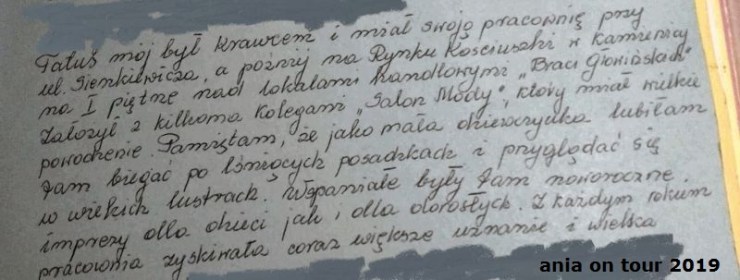 Tatuś mój był krawcem i miał swoją pracownię przy
ul. Sienkiewicza, a później na Rynku Kościuszki w kamienicy
na I piętrze nad lokalami handlowymi „Braci Głowińskich”
założył z kilkoma kolegami „Salon Mody”, który miał wielkie
powodzenie. Pamiętam, że jako mała dziewczynka lubiłam
tam biegać po lśniących posadzkach i przyglądać się
w wielkich lustrach. Wspaniałe były tam noworoczne
imprezy dla dzieci jak i dla dorosłych. Z każdym rokiem
pracownia zyskiwała coraz większe uznanie i wielka
ania on tour 2019